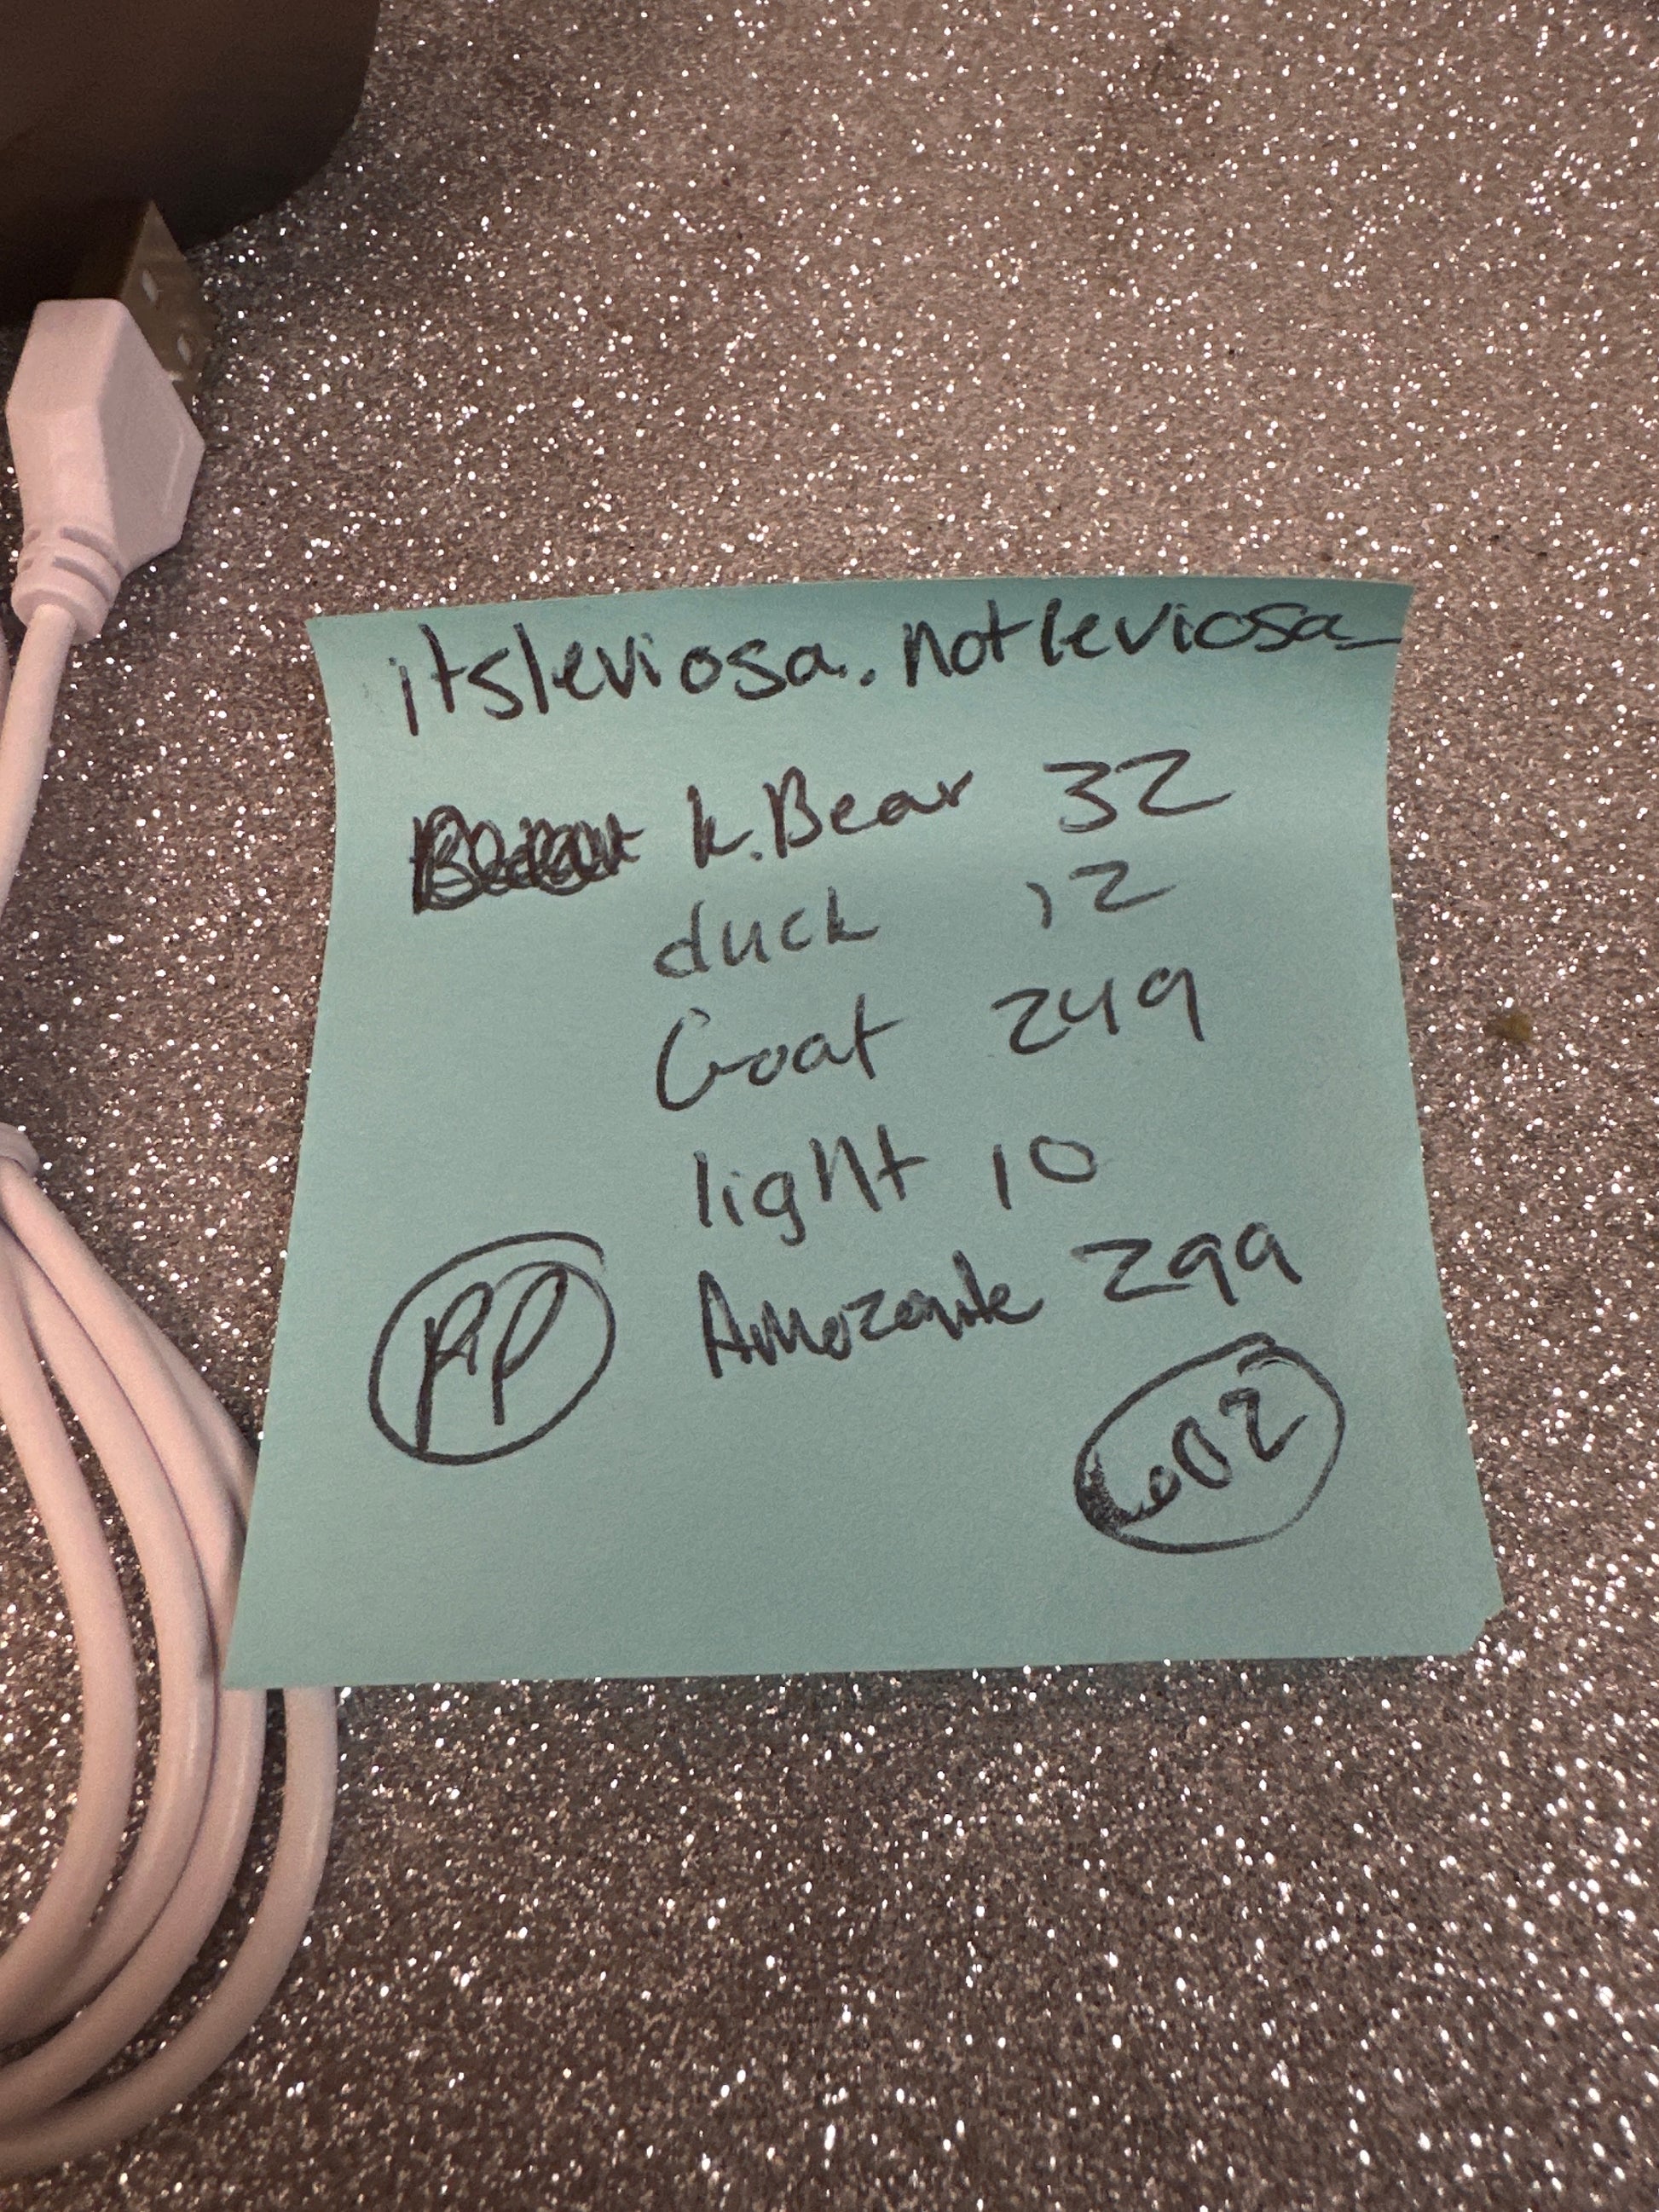 itsleviosa.notleviosa_
k.Bear 32
duck 12
Goat 249
light 10
Amozonite 299
PP
602